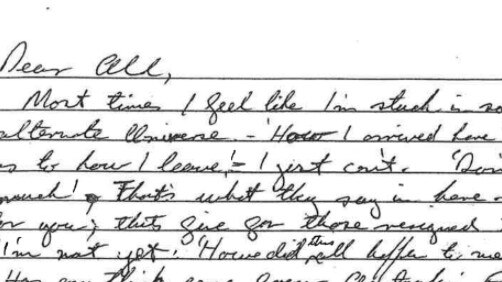 Dear All,
Most times I feel like I'm stuck in so
alternate Universe - 'How I arrived here
as to how I leave' - I just can't. 'Don
much', That's what they say in here -
for you; thats fine for those resigned
I'm not yet. 'How did this all happen to me